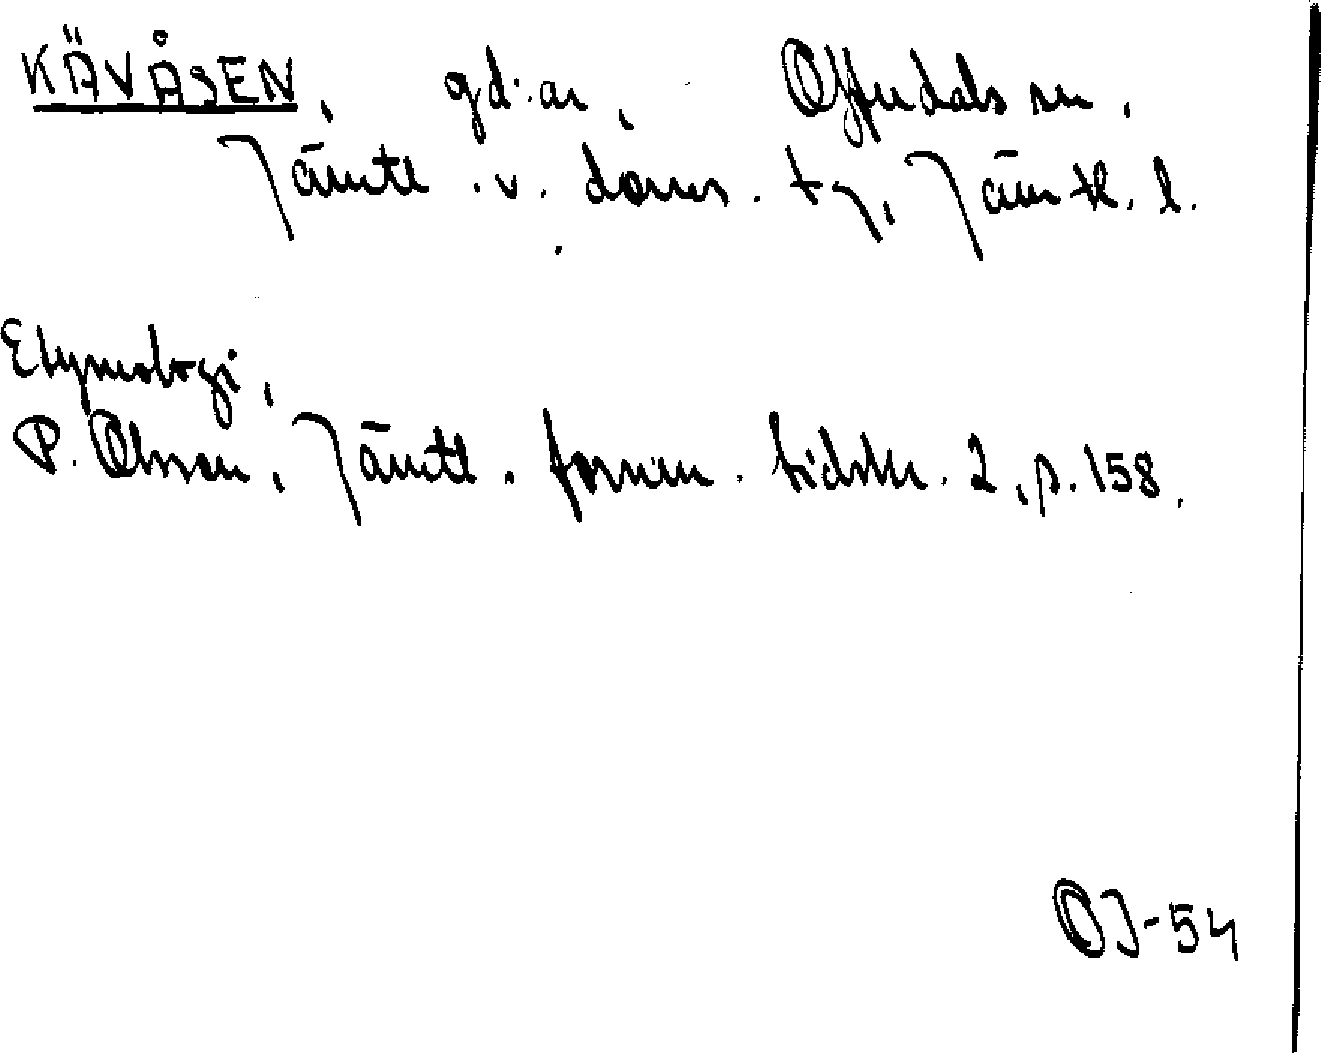 KÄVÅSEN, gd:ar, Offerdals sn,
Jämtl. v. doms. tg, Jämtl. l.
Etymologi,
P. Olsson, Jämtl. fornm. tidskr. 2, s. 158.
OJ-54